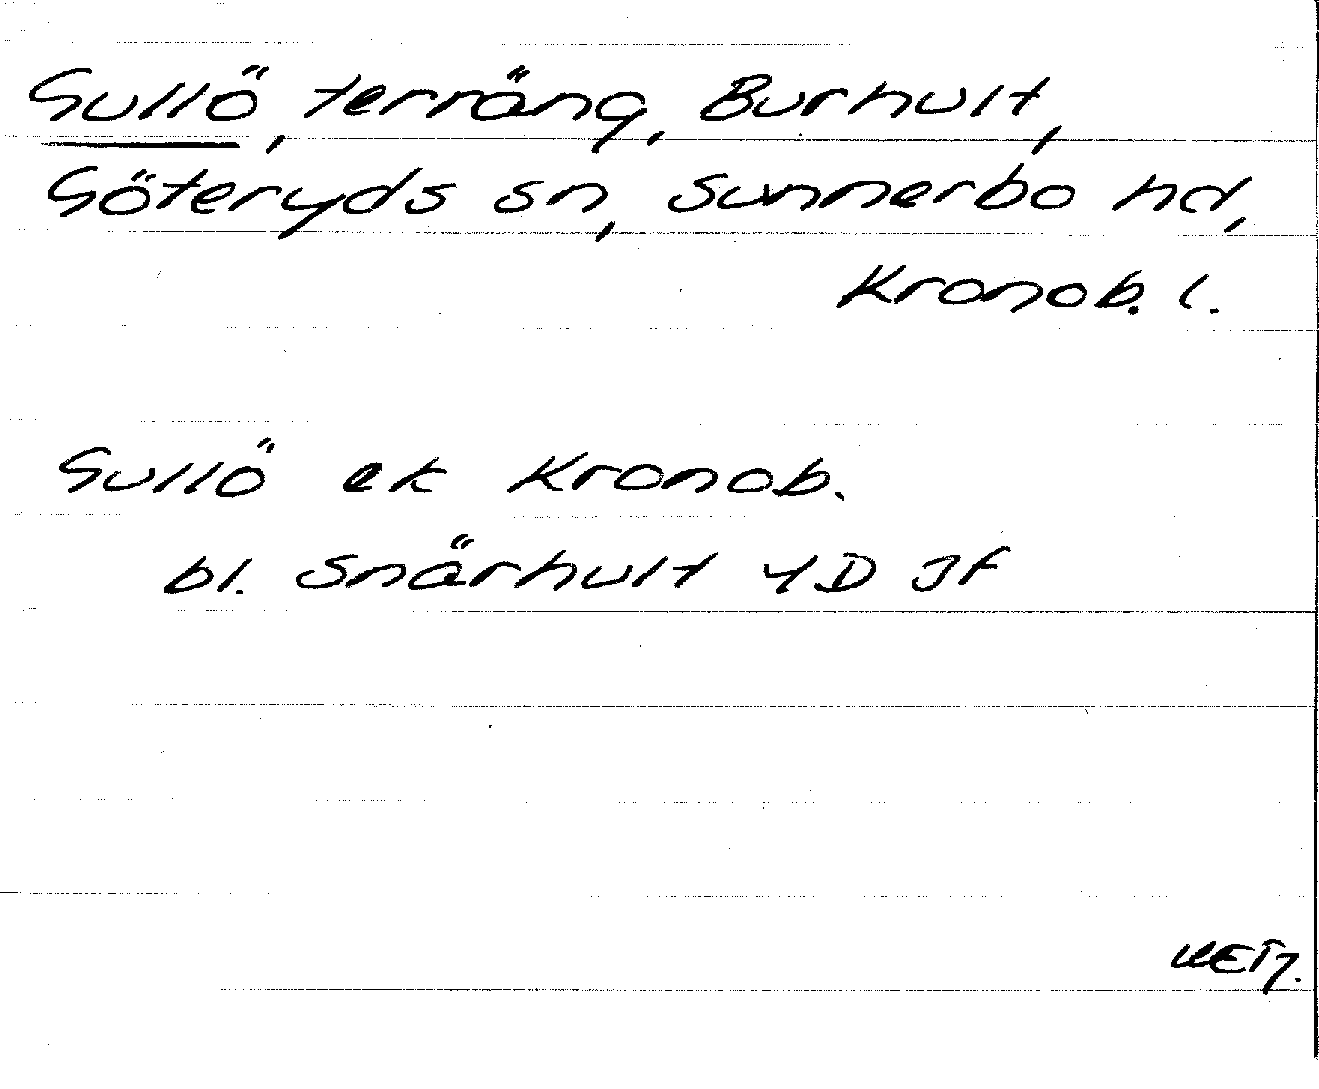 Gullö, terräng, Burhult,
Göteryds sn, Sunnerbo hd,
Kronob. l.
Gullö ek Kronob.
bl. Snärhult 4D Jf